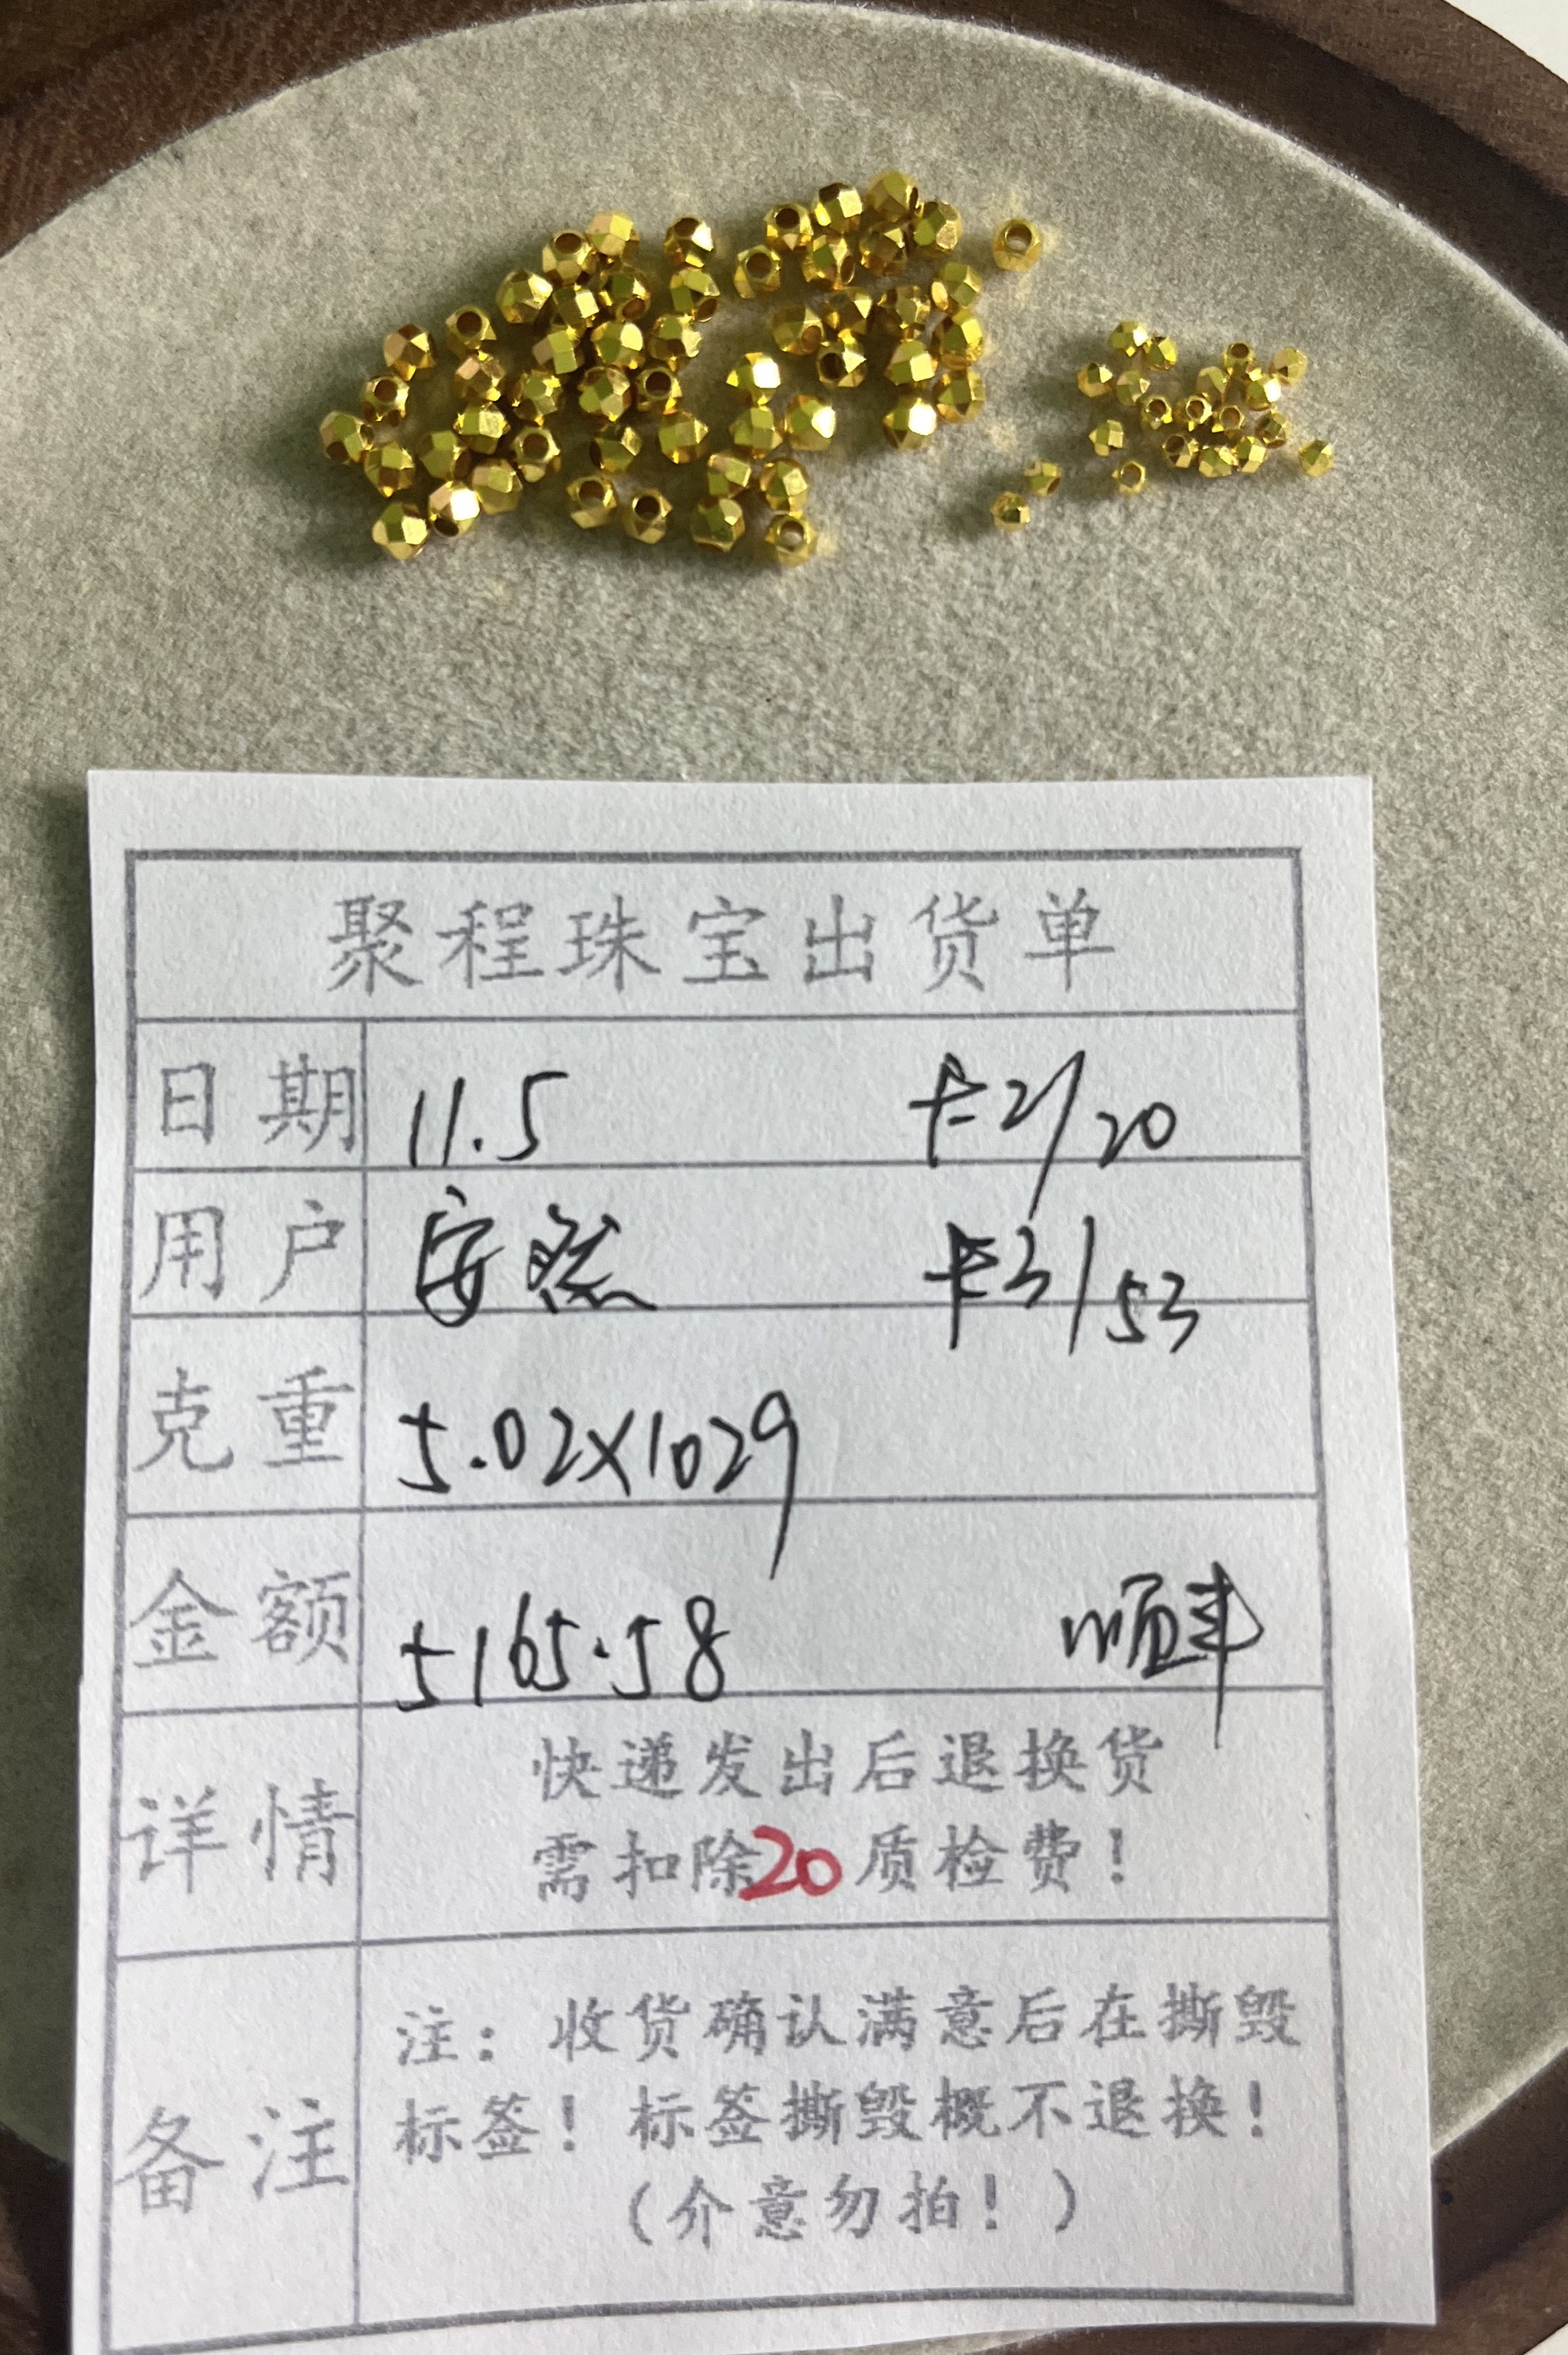 聚程珠宝出货单
日期 11.5 卡2/20
用户 安然 卡3/53
克重 5.02×1029
金额 5165.58 顺丰
详情 快递发出后退换货
需扣除20质检费！
备注 注：收货确认满意后在撕毁
标签！标签撕毁概不退换！
（介意勿拍！）